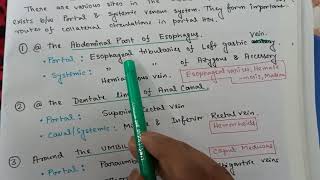 There are various sites in the
exists b/w Portal & Systemic venous system. They form important
routes of collateral circulations in portal HTN.
① @ the Abdominal Part of Esophagus.
• Portal : Esophageal tributaries of Left gastric vein.
• Systemic : " " of Azygous & Accessory
Hemiazygous vein. Esophageal varices, Hemate
-mesis, Malena
② @ the Dentate line of Anal Canal.
• Portal : Superior Rectal vein.
• Caval/Systemic : Middle & Inferior Rectal vein.
Hemorrhoids
③ Around the UMBILIC
Caput Medusae
• Portal : Paraumb
epigastric veins